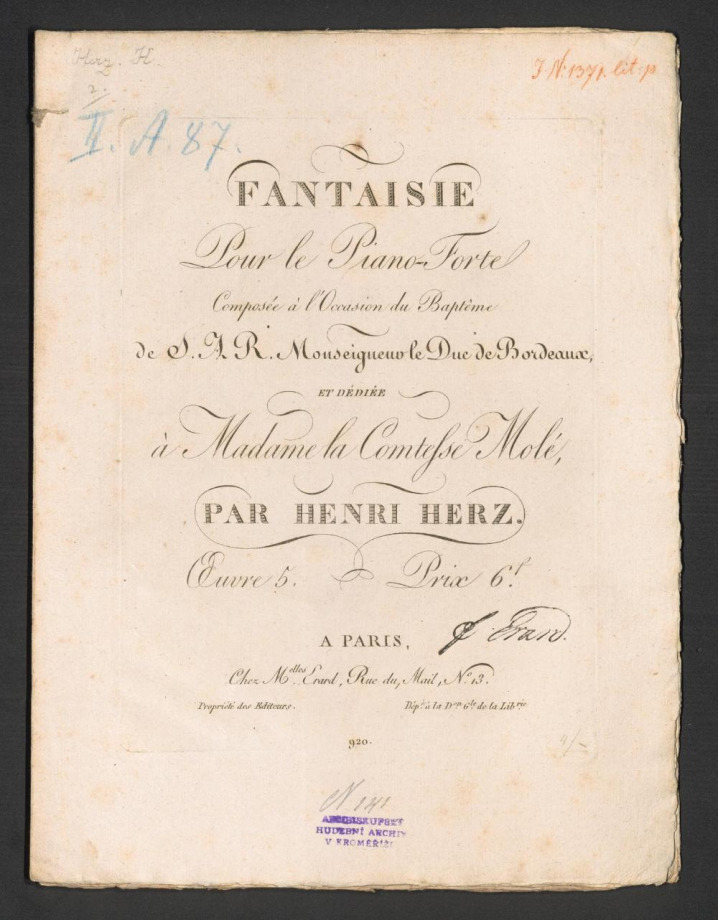 Herz. H.
2.
J. N: 1371. lit. p
II. A. 87.
FANTAISIE
Pour le Piano-Forte
Composée à l'Occasion du Baptême
de S. A. R. Monseigneur le Duc de Bordeaux,
ET DÉDIÉE
à Madame la Comtesse Molé,
PAR HENRI HERZ.
Œuvre 5. Prix 6f.
Erard.
A PARIS,
Chez Melles Erard, Rue du Mail, No. 13.
Propriété des Editeurs. Dép. à la Don Gle de la Librie
920.
4/-
N. 141
ARCIBISKUPSKÝ
HUDEBNÍ ARCHIV
V KROMĚŘÍŽI